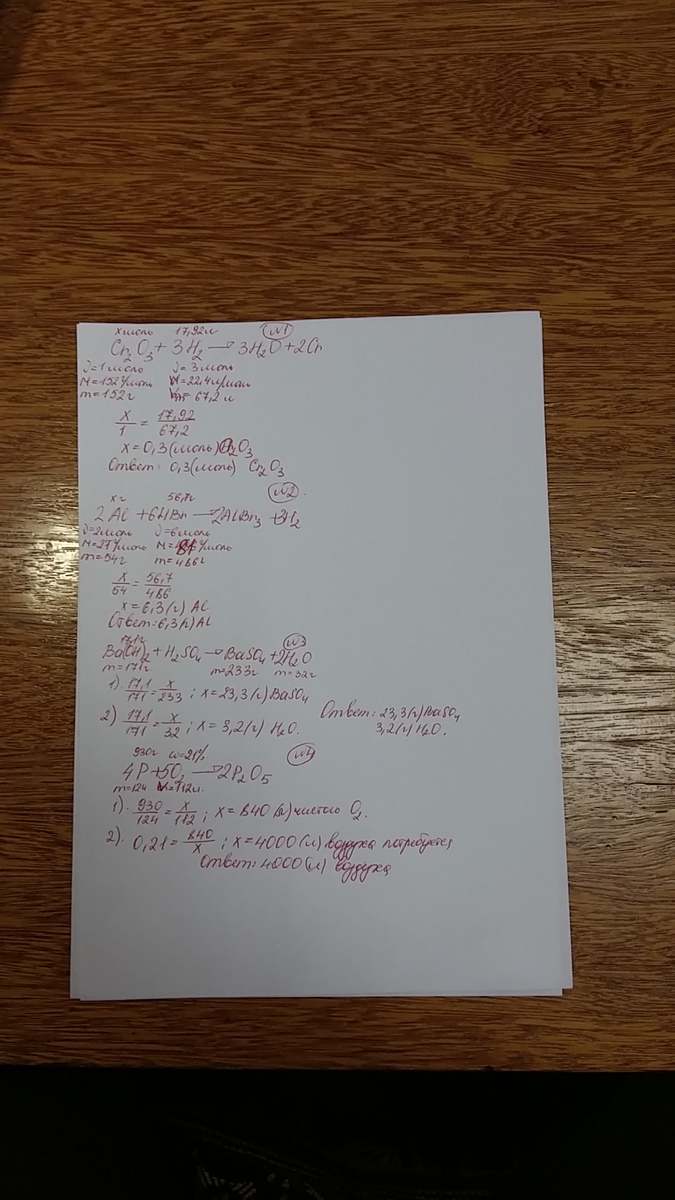 х моль 17,92 л №1
Cr₂O₃ + 3H₂ → 3H₂O + 2Cr
ν=1 моль ν=3 моль
M=152 г/моль V=22,4 л/моль
m=152 г Vm=67,2 л
x/1 = 17,92/67,2
x=0,3 (моль) Cr₂O₃
Ответ: 0,3 (моль) Cr₂O₃
х г 56,7 г №2
2Al + 6HBr → 2AlBr₃ + 3H₂
ν=2 моль ν=6 моль
M=27 г/моль M=81 г/моль
m=54 г m=486 г
x/54 = 56,7/486
x=6,3 (г) Al
Ответ: 6,3 (г) Al
17,1 г №3
Ba(OH)₂ + H₂SO₄ → BaSO₄ + 2H₂O
m=171 г m=233 г m=32 г
1) 17,1/171 = x/233 ; x=23,3 (г) BaSO₄
2) 17,1/171 = x/32 ; x=3,2 (г) H₂O.
Ответ: 23,3 (г) BaSO₄
3,2 (г) H₂O.
930 г ω=21% №4
4P + 5O₂ → 2P₂O₅
m=124 V=112 л.
1). 930/124 = x/112 ; x=840 (л) чистого O₂.
2). 0,21 = 840/x ; x=4000 (л) воздуха потребуется
Ответ: 4000 (л) воздуха